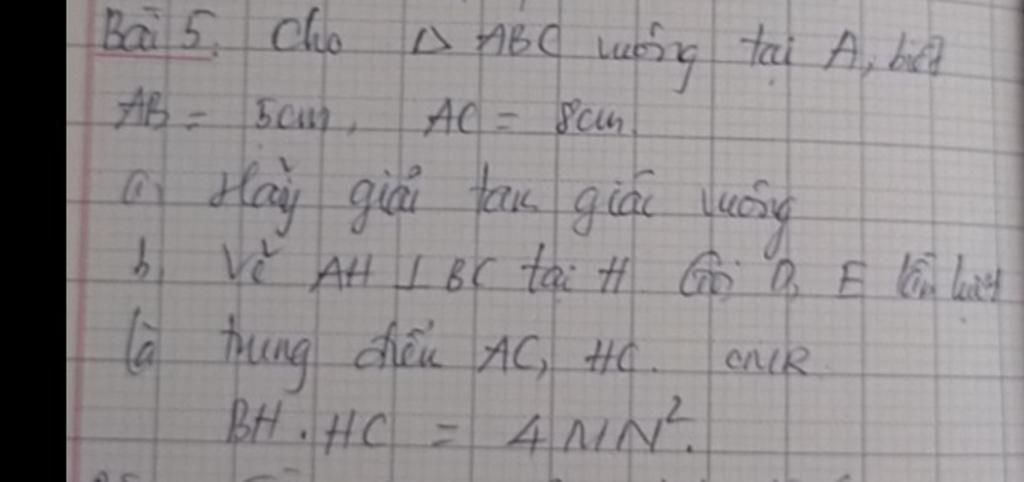 Bài 5. Cho △ ABC vuông tại A, biết
AB = 5cm, AC = 8cm
a) Hãy giải tam giác vuông
b) Vẽ AH ⊥ BC tại H Gọi D, E lần lượt
là trung điểm AC, HC. CMR
BH . HC = 4 MN².